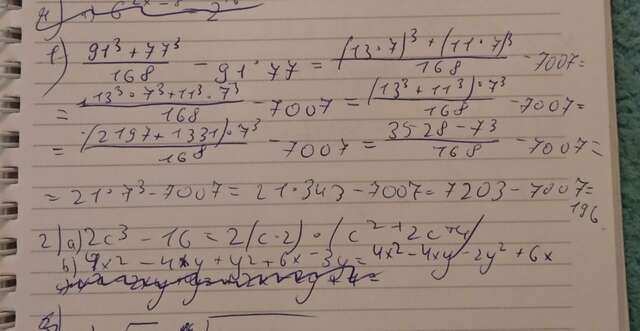 1) 91³ + 77³ / 168 - 91·77 = (13·7)³ + (11·7)³ / 168 - 7007 =
= 13³·7³ + 11³·7³ / 168 - 7007 = (13³ + 11³)·7³ / 168 - 7007 =
= (2197 + 1331)·7³ / 168 - 7007 = 3528 - 7³ / 168 - 7007 =
= 21·7³ - 7007 = 21·343 - 7007 = 7203 - 7007 =
196
2) a) 2c³ - 16 = 2(c-2)·(c² + 2c + 4)
b) 4x² - 4xy + y² + 6x - 3y = 4x² - 4xy - 2y² + 6x